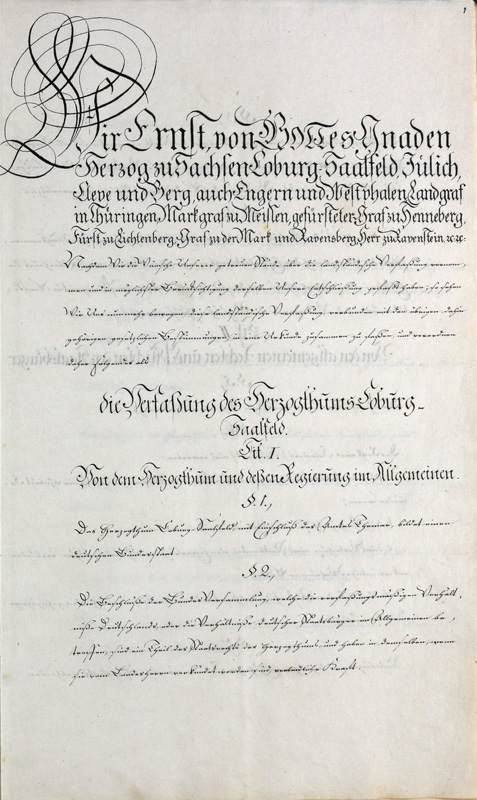 1
Wir Ernst, von GOTTes Gnaden
Herzog zu Sachsen Coburg-Saalfeld, Jülich,
Cleve und Berg, auch Engern und Westphalen, Landgraf
in Thüringen, Markgraf zu Meißen, gefürsteter Graf zu Henneberg,
Fürst zu Lichtenberg, Graf zu der Mark und Ravensberg, Herr zu Ravenstein, ꝛc ꝛc
Nachdem Wir die Wünsche Unserer getreuen Stände über die landständische Verfassung vernom,
men und in möglichster Berücksichtigung derselben Unsere Entschließung gefaßt haben; so haben
Wir Uns nunmehr bewogen, diese landständische Verfassung, verbunden mit den übrigen dahin
gehörigen gesetzlichen Bestimmungen, in eine Urkunde zusammen zu fassen, und verordnen
daher Folgendes als
die Verfaßung des Herzogthums Coburg-
Saalfeld.
Tit. I.
Von dem Herzogthum und deßen Regierung im Allgemeinen.
§. 1.,
Das Herzogthum Coburg-Saalfeld, mit Einschluß des Amtes Themar, bildet einen
deutschen Bundesstaat.
§. 2.,
Die Beschlüße der Bundes Versammlung, welche die verfaßungsmäßigen Verhält,
niße Deutschlands, oder die Verhältniße deutscher Staatsbürger im Allgemeinen be,
treffen, sind ein Theil des Staatsrechts des Herzogthums, und haben in demselben, wenn
sie vom Landesherrn verkündet worden sind, verbindliche Kraft.